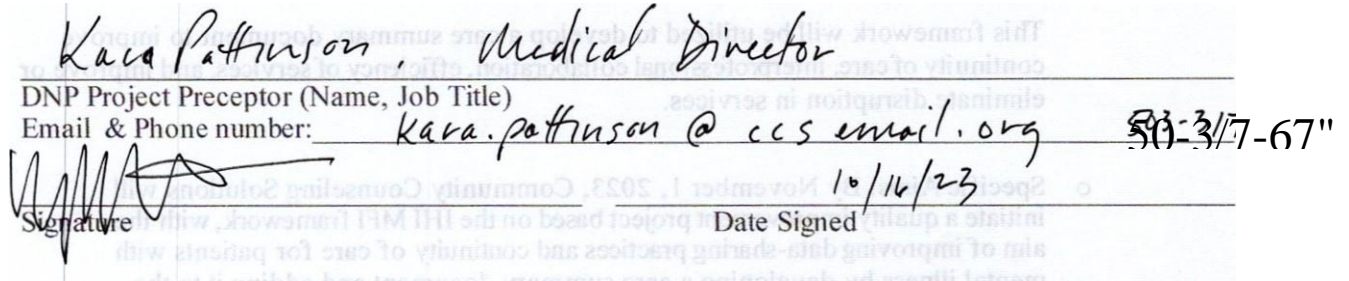 Kara Pattinson, Medical Director
DNP Project Preceptor (Name, Job Title)
Email & Phone number: Kara.pattinson @ ccsemail.org
Signature 10/16/23 Date Signed